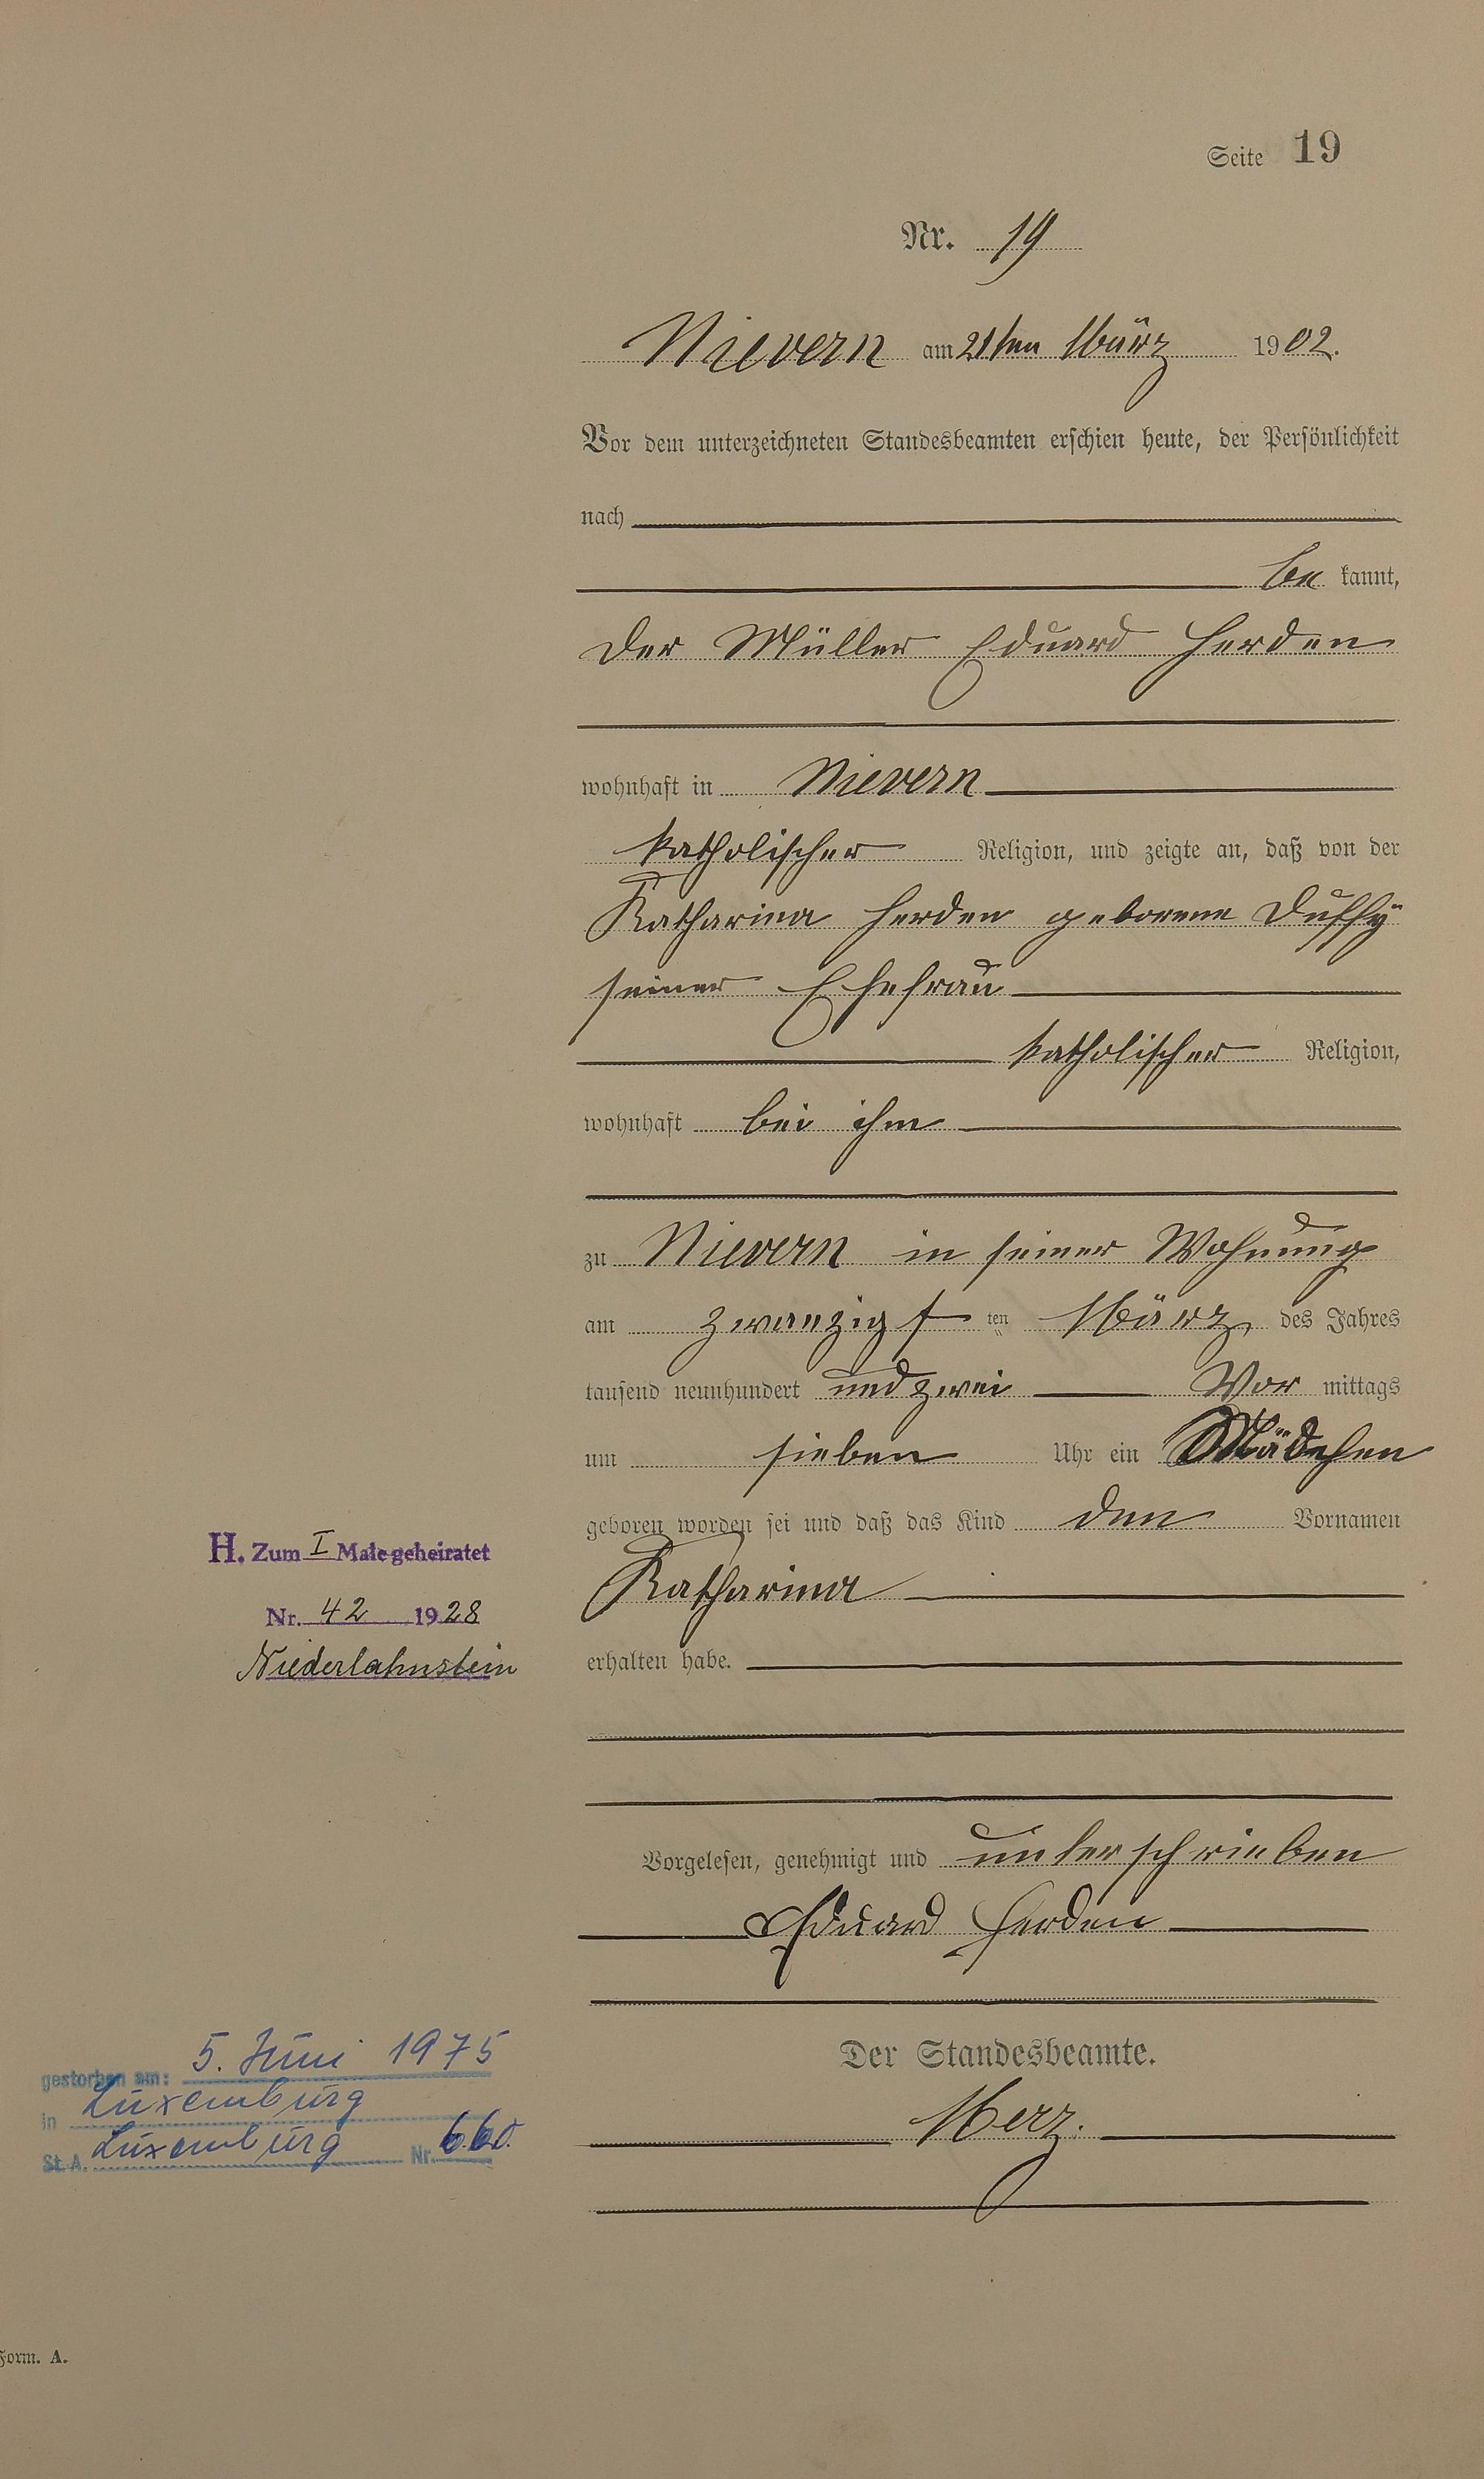 Seite 19
Nr. 19
Nievern am 21ten März 1902.
Vor dem unterzeichneten Standesbeamten erschien heute, der Persönlichkeit
nach
be kannt,
der Müller Eduard Herden
wohnhaft in Nievern
katholischer Religion, und zeigte an, daß von der
Katharina Herden geborene Duffy
seiner Ehefrau
katholischer Religion,
wohnhaft bei ihm
zu Nievern in seiner Wohnung
am zwanzigsten März des Jahres
tausend neunhundert und zwei Vor mittags
um sieben Uhr ein Mädchen
geboren worden sei und daß das Kind den Vornamen
Katharina
erhalten habe.
Vorgelesen, genehmigt und unterschrieben
Eduard Herden
Der Standesbeamte.
Merz.
H. Zum I Male geheiratet
Nr. 42 1928
Niederlahnstein
gestorben am: 5. Juni 1975
in Luxemburg
St. A. Luxemburg Nr. 660.
Form. A.